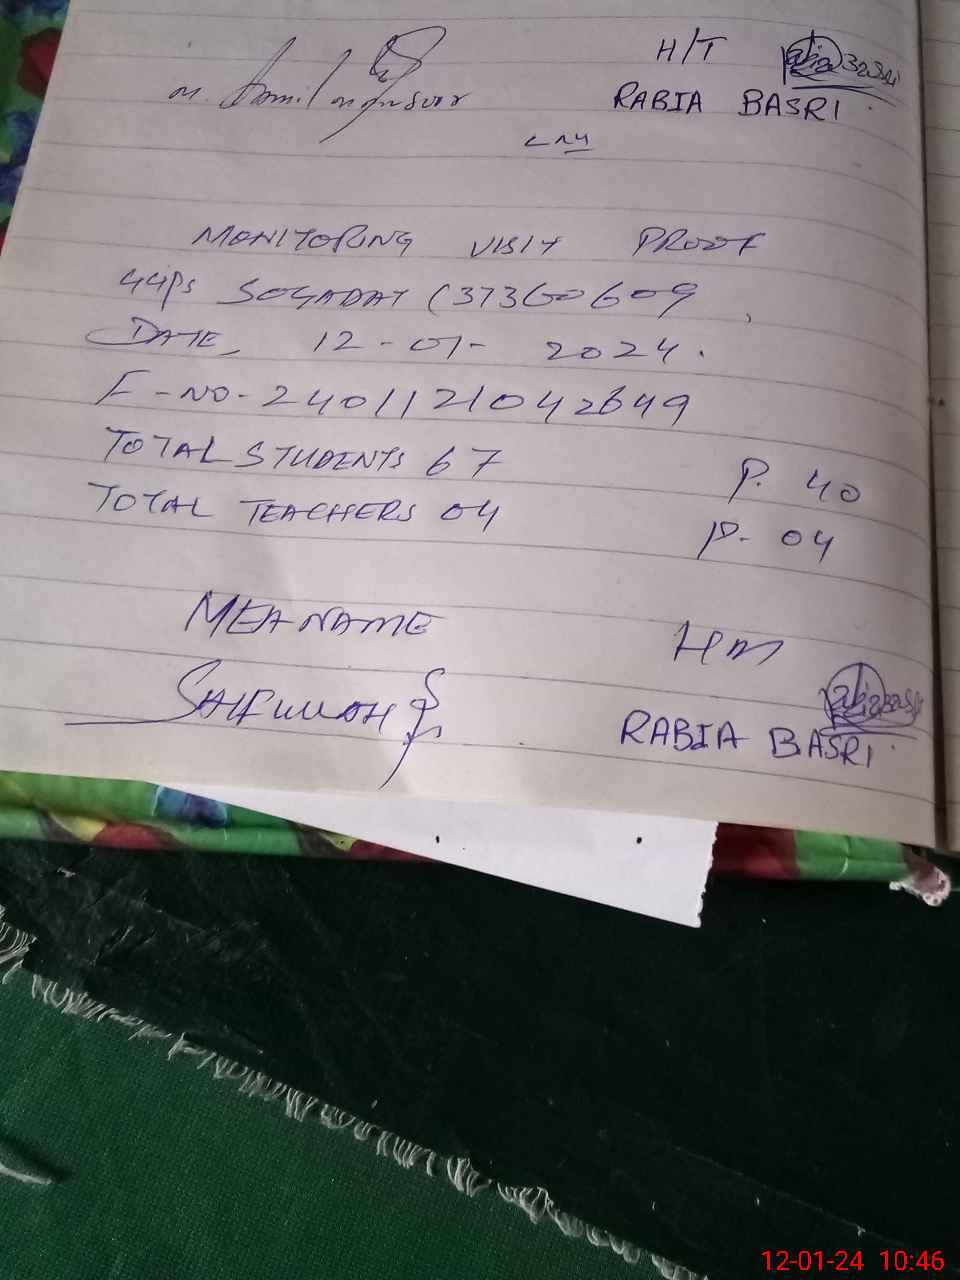 H/T
RABIA BASRI
MONITORING VISIT PROOF
GGPS SOGADAY (37360609
DATE, 12-01-2024.
F-NO-2401121042649
TOTAL STUDENTS 67 P. 40
TOTAL TEACHERS 04 P- 04
MEA NAME HM
SAIFULLAH
RABIA BASRI
12-01-24 10:46